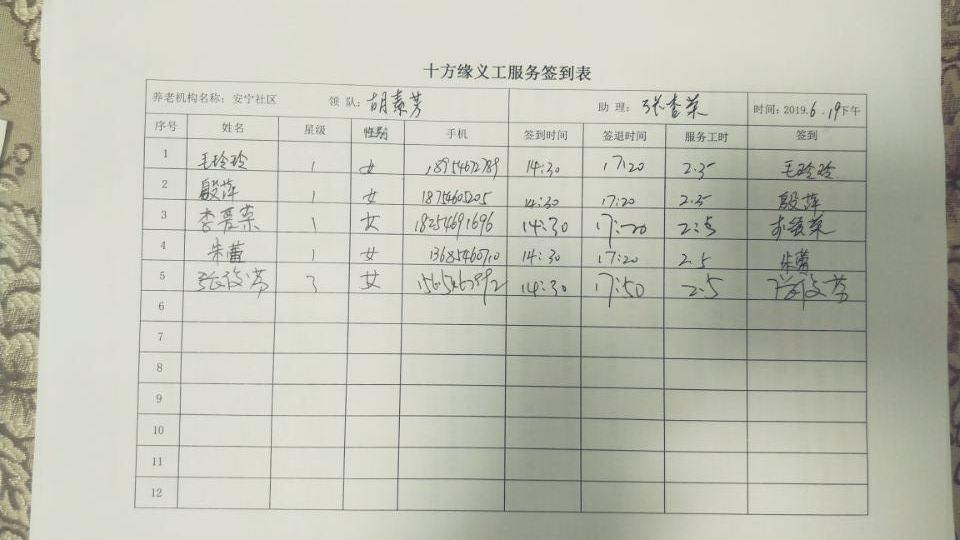 十方缘义工服务签到表
养老机构名称：安宁社区 领 队：胡素芳 助 理：张杏荣 时间：2019.6.19下午
序号 姓名 星级 性别 手机 签到时间 签退时间 服务工时 签到
1 毛玲玲 1 女 18954672789 14:30 17:20 2.35 毛玲玲
2 殷萍 1 女 18754605205 14:30 17:20 2.5 殷萍
3 李爱荣 1 女 18254691696 14:30 17:20 2:5
4 朱蕾 1 女 13685460710 14:30 17:20 2.5 朱蕾
5 3 女 14:30 17:50 2.5
6
7
8
9
10
11
12